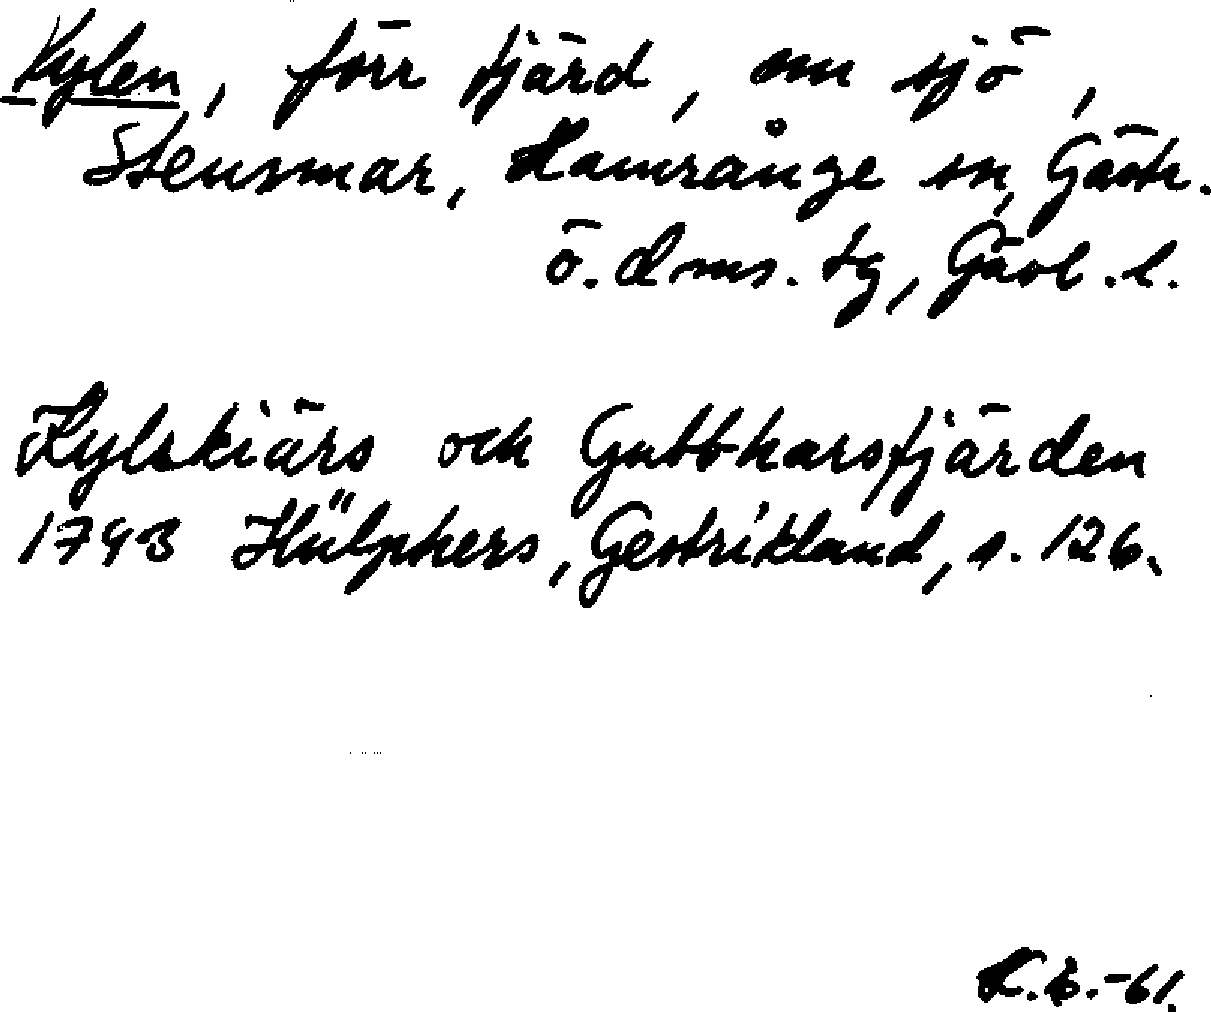 Kylen, förr fjärd, nu sjö,
Stensmar, Hamrånge sn, Gästr.
ö. dms. tg, Gävl. l.
Kylskiärs och Gubbharsfjärden
1793 Hülphers, Gestrikland, s. 126.
K. B. -61.